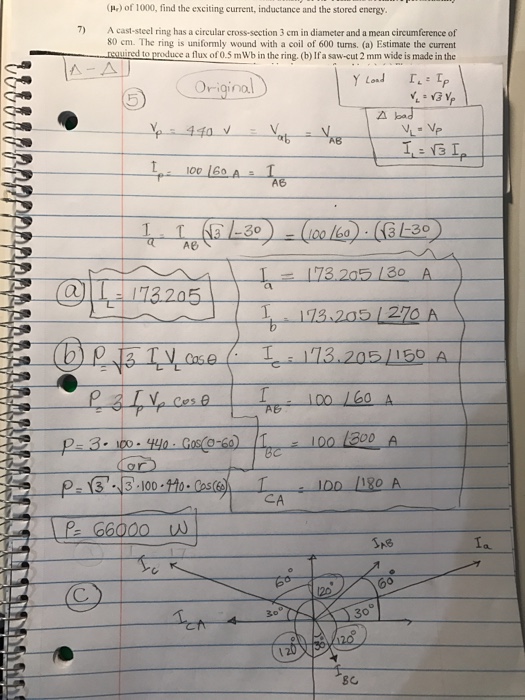 (μr) of 1000, find the exciting current, inductance and the stored energy.
7) A cast-steel ring has a circular cross-section 3 cm in diameter and a mean circumference of
80 cm. The ring is uniformly wound with a coil of 600 turns. (a) Estimate the current
required to produce a flux of 0.5 mWb in the ring. (b) If a saw-cut 2 mm wide is made in the
Δ - Δ
Original
Y Load IL = Ip
VL = √3 Vp
Δ load
VL = Vp
IL = √3 Ip
5
Vp = 440 V = Vab = VAB
Ip = 100 ∠60 A = IAB
Ia = IAB (√3 ∠-30) = (100 ∠60) · (√3 ∠-30)
(a) IL = 173.205
Ia = 173.205 ∠30 A
Ib = 173.205 ∠270 A
(b) P = √3 IL VL cosθ
Ic = 173.205 ∠150 A
P = 3 Ip Vp cosθ
IAB = 100 ∠60 A
P = 3 · 100 · 440 · Cos(0-60)
IBC = 100 ∠300 A
(or)
P = √3 · √3 · 100 · 440 · Cos(60)
ICA = 100 ∠180 A
P = 66000 W
(C)
Ic
IAB
Ia
60°
120°
60°
ICA
30°
30°
120°
30°
120°
IBC